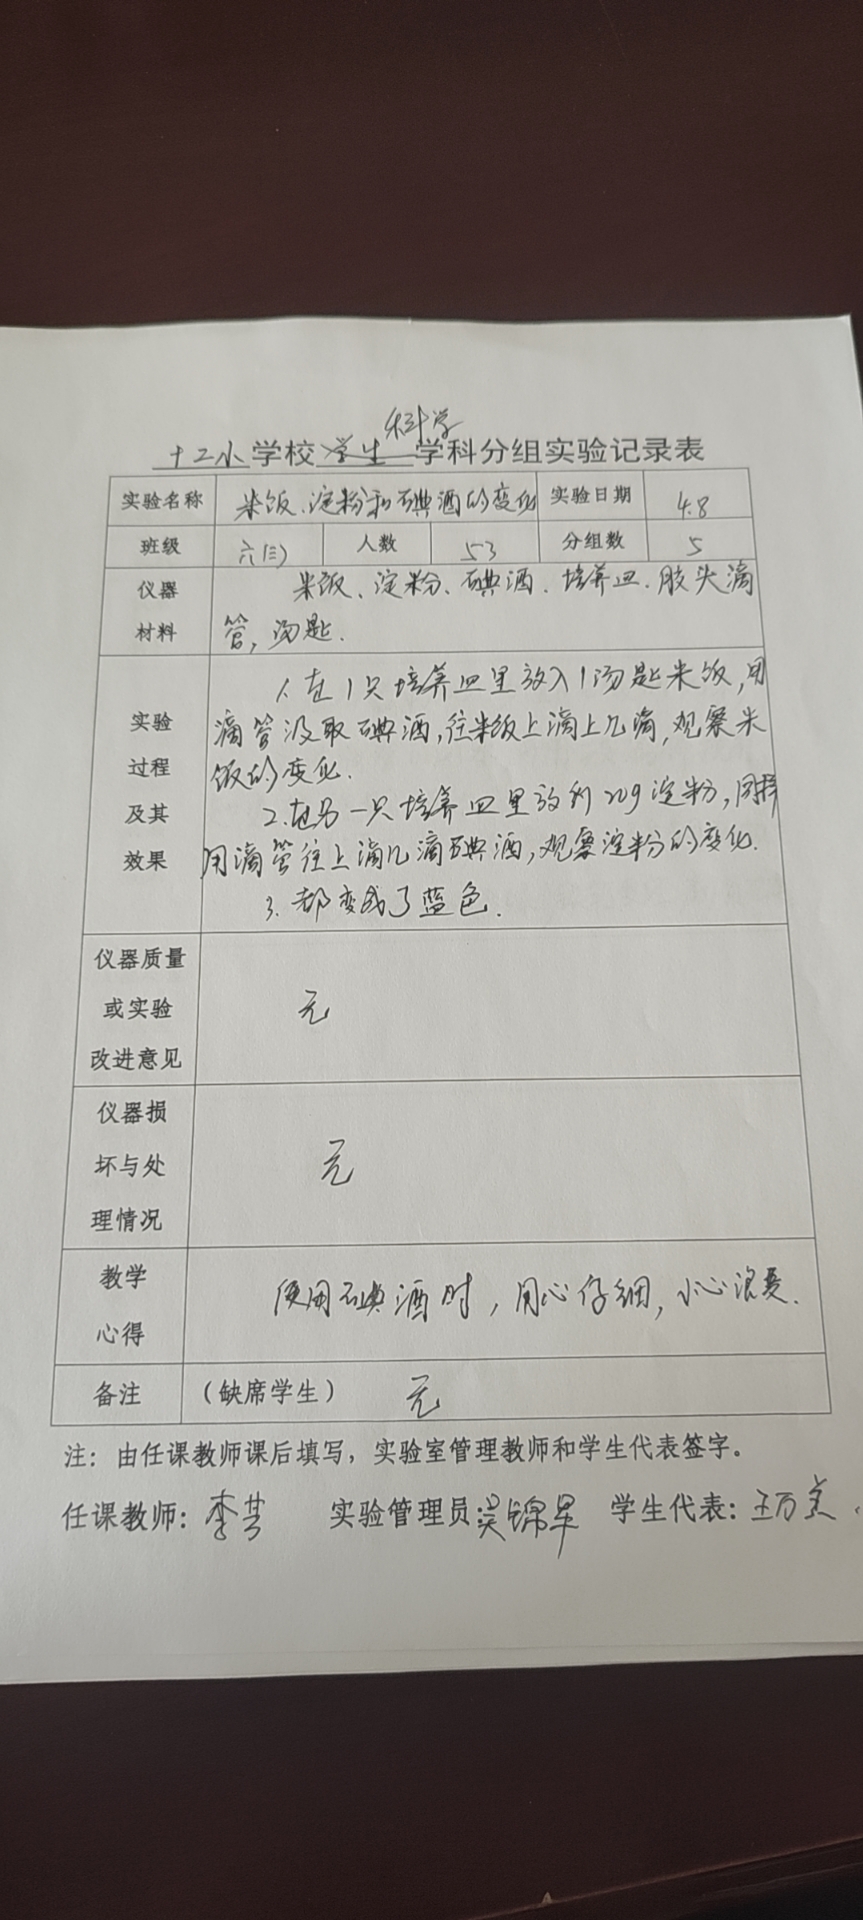 科学
十二小学校学生学科分组实验记录表
实验名称 米饭、淀粉和碘酒的变化 实验日期 4.8
班级 六(三) 人数 53 分组数 5
仪器 米饭、淀粉、碘酒、培养皿、胶头滴
材料 管,汤匙.
1.在1只培养皿里放入1汤匙米饭,用
实验 滴管汲取碘酒,往米饭上滴上几滴,观察米
过程 饭的变化.
及其 2.在另一只培养皿里放到20g淀粉,同样
效果 用滴管往上滴几滴碘酒,观察淀粉的变化.
3.都变成了蓝色.
仪器质量
或实验 无
改进意见
仪器损
坏与处 无
理情况
教学 使用碘酒时,用心仔细,小心浪费.
心得
备注 (缺席学生) 无
注:由任课教师课后填写,实验室管理教师和学生代表签字。
任课教师:李 实验管理员吴锦 学生代表:王万